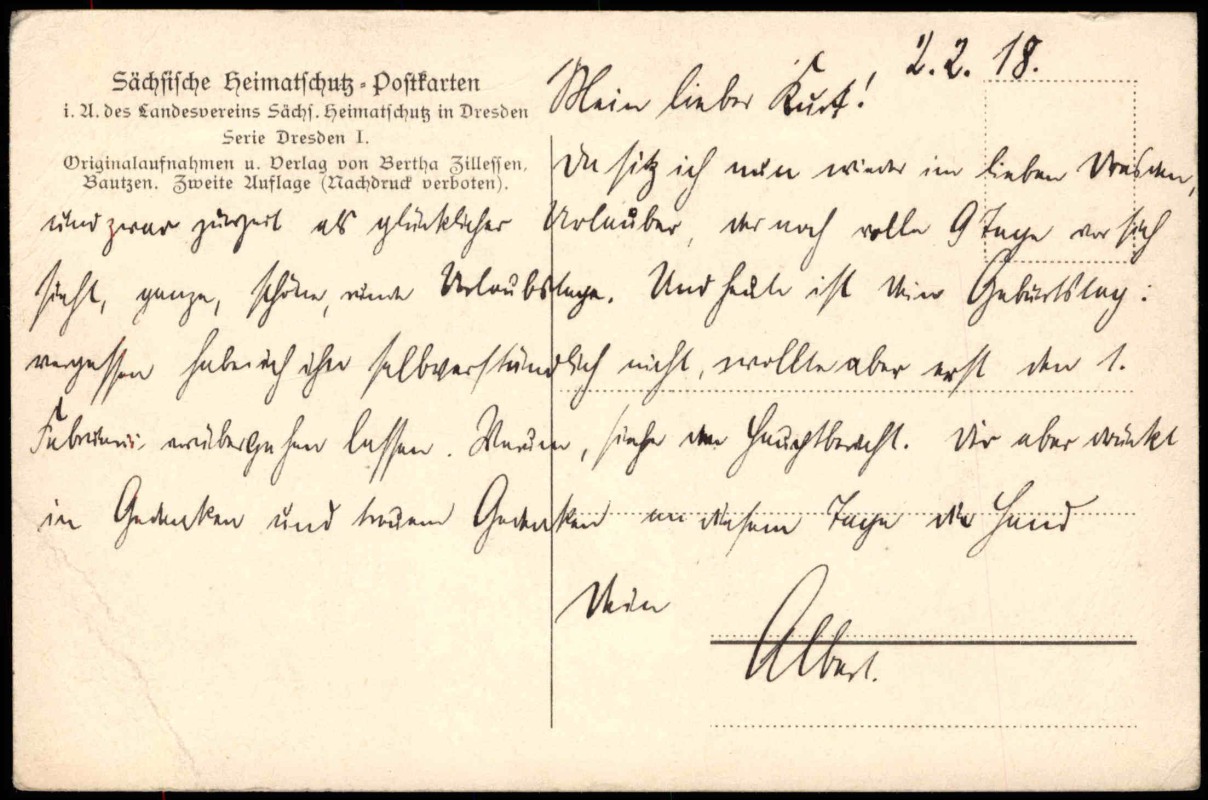 Sächsische Heimatschutz-Postkarten
i. A. des Landesvereins Sächs. Heimatschutz in Dresden
Serie Dresden I.
Originalaufnahmen u. Verlag von Bertha Zillessen,
Bautzen. Zweite Auflage (Nachdruck verboten).
2. 2. 18.
Mein lieber Kurt!
Da sitz ich nun wieder im lieben Dresden,
und zwar zurzeit als glücklicher Urlauber, der noch volle 9 Tage vor sich
sieht, ganze, schöne, runde Urlaubstage. Und heute ist Dein Geburtstag:
vergessen habe ich ihn selbverständlich nicht, wollte aber erst den 1.
Februar vorübergehen lassen. Warum, siehe den Hauptbericht. Dir aber drückt
in Gedanken und treuem Gedenken an diesem Tage die Hand
Dein
Albert.